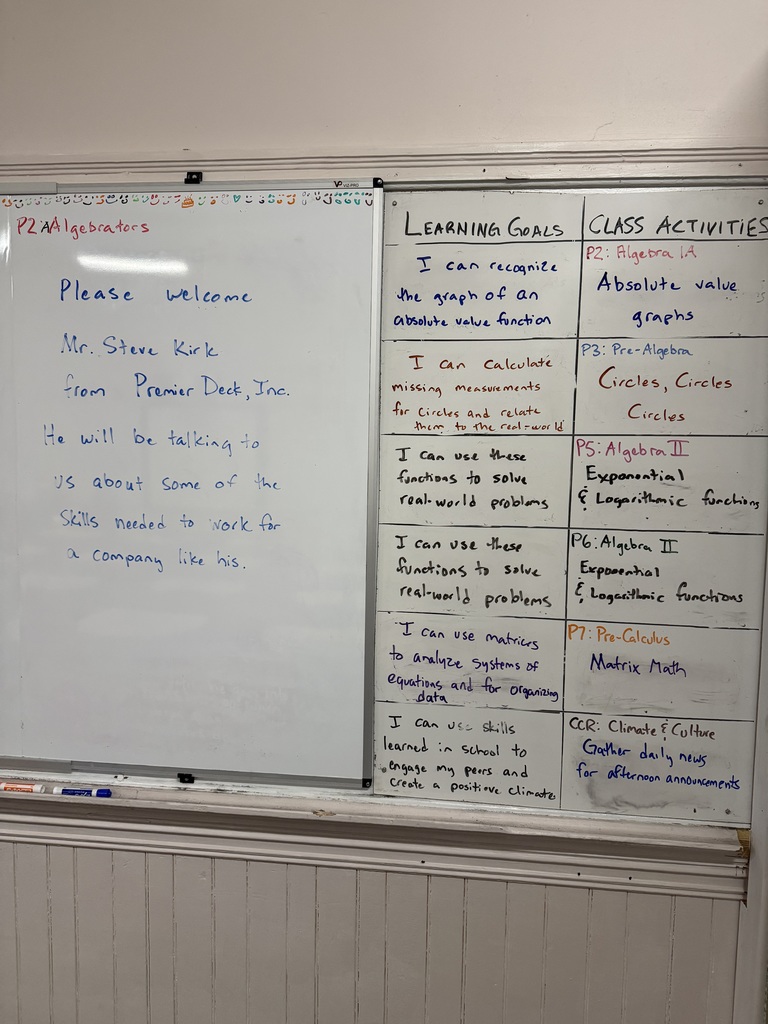 P2 Algebrators
Please welcome
Mr. Steve Kirk
from Premier Deck, Inc.
He will be talking to
us about some of the
skills needed to work for
a company like his.
LEARNING GOALS
CLASS ACTIVITIES
I can recognize
the graph of an
absolute value function
P2: Algebra 1A
Absolute value
graphs
I can calculate
missing measurements
for circles and relate
them to the real-world
P3: Pre-Algebra
Circles, Circles
Circles
I can use these
functions to solve
real-world problems
P5: Algebra II
Exponential
& Logarithmic functions
I can use these
functions to solve
real-world problems
P6: Algebra II
Exponential
& Logarithmic functions
I can use matrices
to analyze systems of
equations and for organizing
data
P7: Pre-Calculus
Matrix Math
I can use skills
learned in school to
engage my peers and
create a positieve climate
CCR: Climate & Culture
Gather daily news
for afternoon announcements